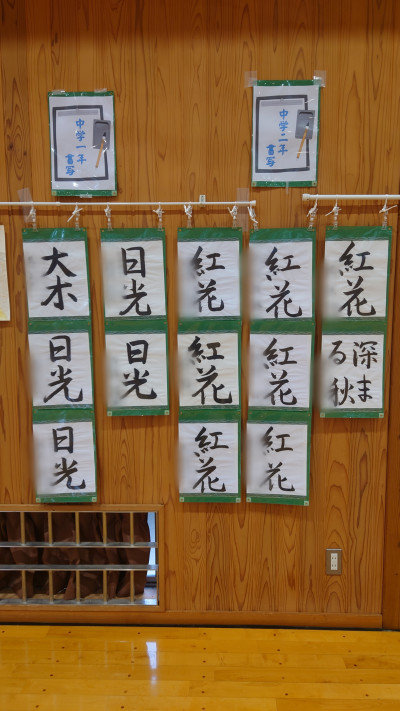 中学一年
書写
中学二年
書写
大木
日光
日光
日光
日光
紅花
紅花
紅花
紅花
紅花
紅花
紅花
深まる秋